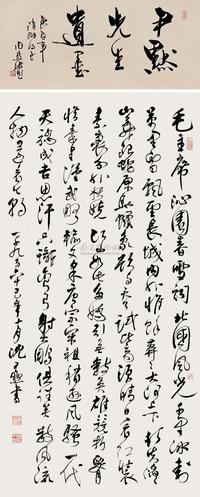 尹默
先生
遺墨
周慧珺題
毛主席沁園春雪詞 北國風光千里冰封
萬里雪飄望長城內外惟餘莽莽大河上下頓失滔滔
山舞銀蛇原馳蠟象欲與天公試比高須晴日看紅裝
素裹分外妖嬈江山如此多嬌引無數英雄競折腰
惜秦皇漢武略輸文采唐宗宋祖稍遜風騷一代
天驕成吉思汗只識彎弓射大雕俱往矣數風流
人物還看今朝 沈尹默書